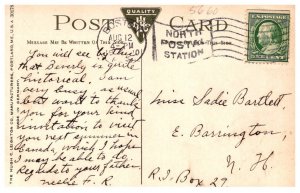 POST CARD
QUALITY
5660
AUG 12
NORTH
POSTAL
STATION
MESSAGE MAY BE WRITTEN ON THIS SIDE
You will see by this
that Beverly is quite
historical. I am
very busy as usual
but want to thank
you for your kind
invitation to visit
you next summer in
Canada, which I hope
I may be able to do.
Regards to your father
Miss Sadie Bartlett,
E. Barrington,
N. H.
R.F. Box 27
THE HUGH C. LEIGHTON CO., MANUFACTURERS, PORTLAND, ME. U.S.A.